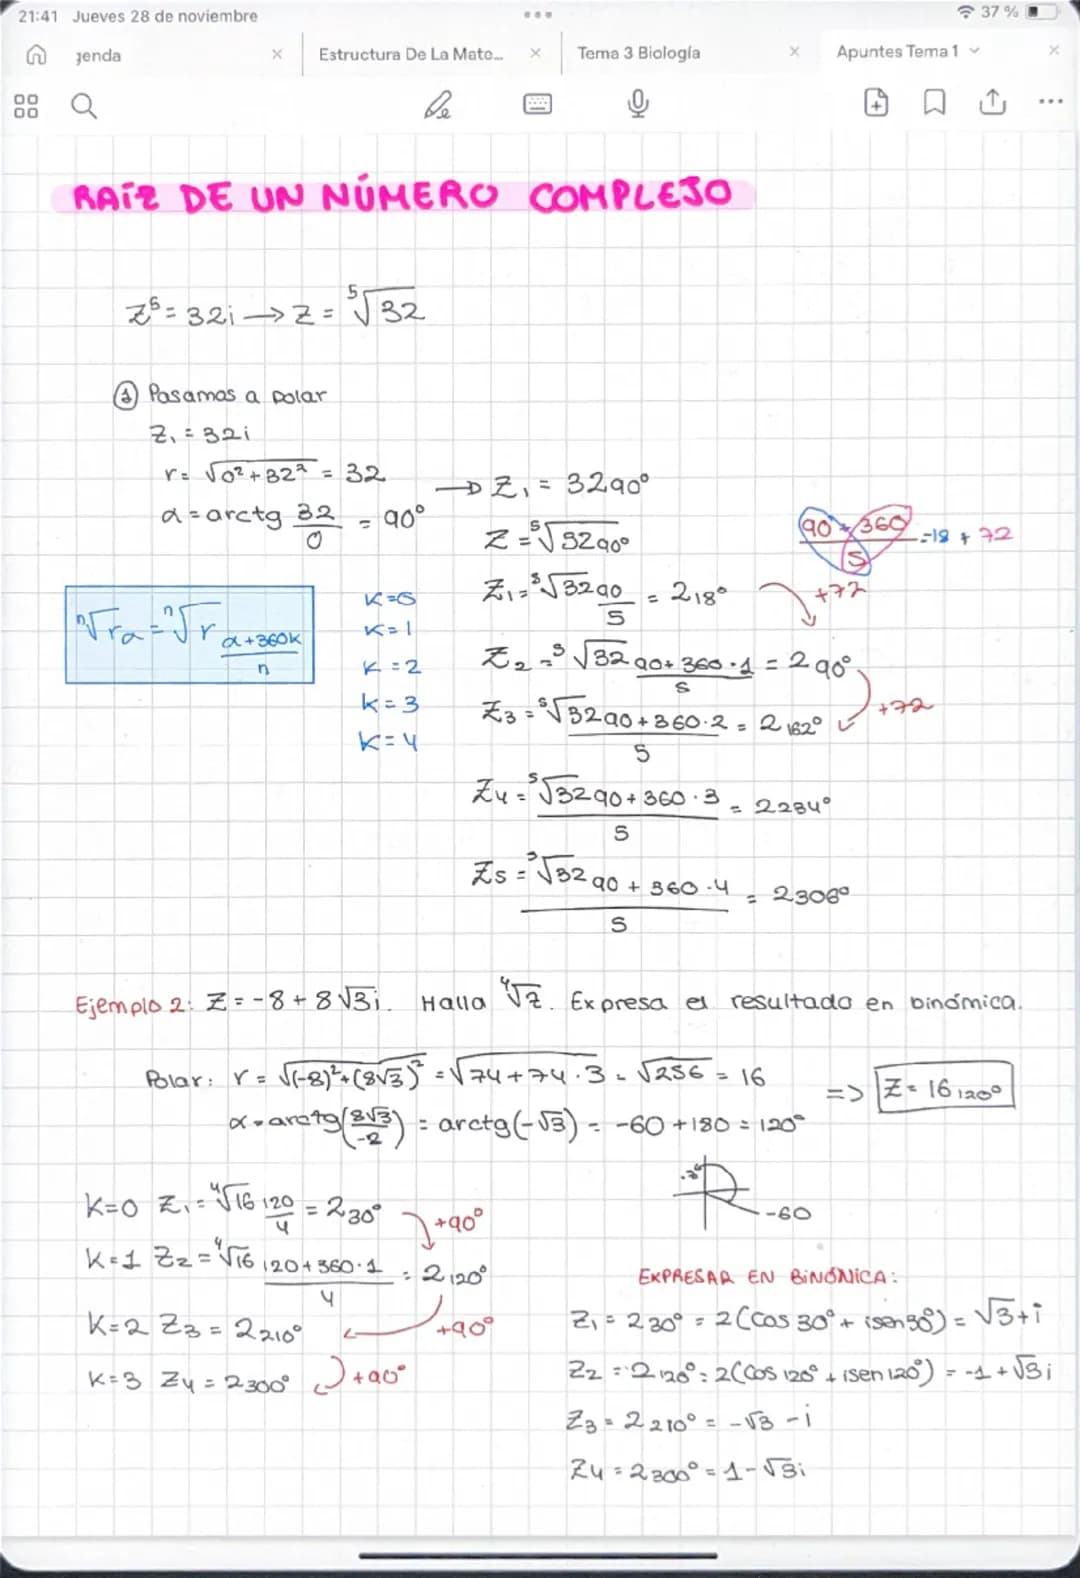 21:41 Jueves 28 de noviembre 37 %
genda Estructura De La Mate... Tema 3 Biología Apuntes Tema 1
RAÍZ DE UN NÚMERO COMPLEJO
z⁵ = 32i → z = ⁵√32
① Pasamos a polar
z₁ = 32i
r = √0²+32² = 32
→ z₁ = 32 90°
α = arctg 32/0 = 90°
z = ⁵√32 90°
90 + 360 / 5 = 18 + 72
ⁿ√r α = ⁿ√r α+360K/n
K=0 z₁ = ⁵√32 90/5 = 2 18°
+72
K=1
K=2 z₂ = ⁵√32 90+360·1/5 = 2 90°
+72
K=3 z₃ = ⁵√32 90+360·2/5 = 2 162°
K=4
z₄ = ⁵√32 90+360·3/5 = 2 234°
z₅ = ⁵√32 90+360·4/5 = 2 306°
Ejemplo 2: z = -8 + 8√3i. Halla ⁴√z. Expresa el resultado en binómica.
Polar: r = √(-8)²+(8√3)² = √74+74·3 = √256 = 16
=> z = 16 120°
α = arctg(8√3/-2) = arctg(-√3) = -60 + 180 = 120°
-60
K=0 z₁ = ⁴√16 120/4 = 2 30°
+90°
K=1 z₂ = ⁴√16 120+360·1/4 = 2 120°
+90°
K=2 z₃ = 2 210°
K=3 z₄ = 2 300° +90°
EXPRESAR EN BINÓNICA:
z₁ = 2 30° = 2(cos 30° + isen 30°) = √3+i
z₂ = 2 120° = 2(cos 120° + isen 120°) = -1 + √3i
z₃ = 2 210° = -√3 - i
z₄ = 2 300° = 1 - √3i